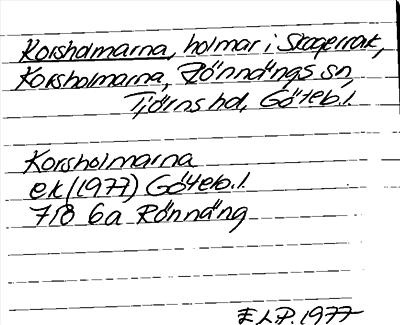 Korsholmarna, holmar i Skagerrak,
Korsholmarna, Rönnängs sn,
Tjörns hd, Göteb.l.
Korsholmarna
ek (1977) Göteb.l.
7I8 6a Rönnäng
E.L.P. 1977